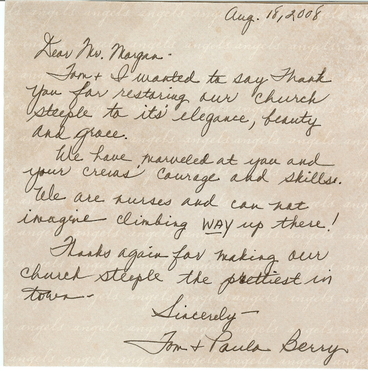 Aug. 18, 2008
Dear Mr. Morgan -
Tom + I wanted to say Thank
you for restoring our church
steeple to its' elegance, beauty
and grace.
We have marveled at you and
your crews' courage and skills.
We are nurses and can not
imagine climbing WAY up there!
Thanks again for making our
church steeple the prettiest in
town -
Sincerely -
Tom + Paula Berry